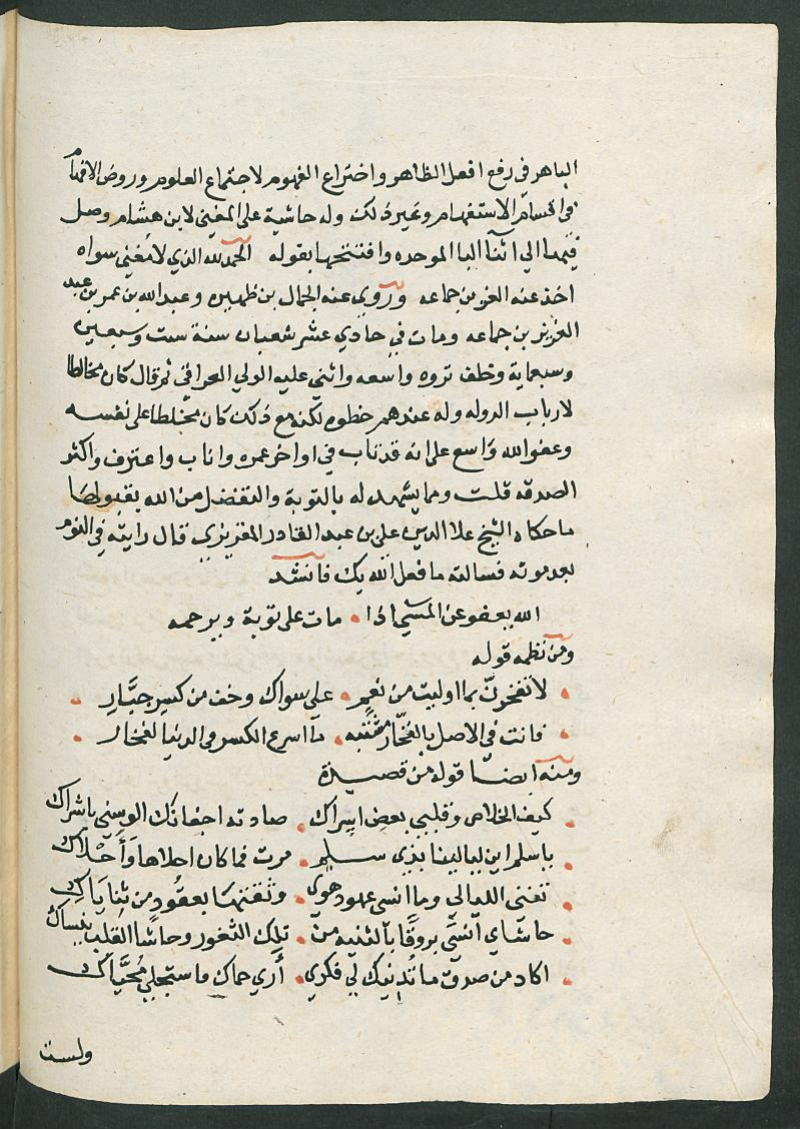 الباهر في رفع افعل الظاهر واختراع الفهوم لاجتماع العلوم وروض الافهام
في اقسام الاستفهام وغير ذلك وله حاشية على المغني لابن هشام وصل
فيها الى اثنا البا الموحده وافتتحها بقوله الحمد لله الذي لا مغني سواه
اخذ عنه العز بن جماعه وروي عنه الجمال بن ظهيره وعبد الله بن عمر بن عبد
العزيز بن جماعه ومات في حادي عشر شعبان سنة ست وسبعين
وسبعماية وخلف ثروه واسعه واثني عليه الولي العراقي ثم قال كان مخالطا
لارباب الدوله وله عندهم حظوه لكنه مع ذلك كان مخلطا على نفسه
وعفو الله واسع على انه قد تاب في اواخر عمره واناب واعترف واكثر
الصدقه قلت ومما يشهد له بالتوبة والتفضل من الله بقبولها
ما حكاه الشيخ علا الدين علي بن عبد القادر المقريزي قال رايته في النوم
بعد موته فسالته ما فعل الله بك فانشد
الله يعفو عن المسي اذا • مات على توبة ويرحمه
ومن نظمه قوله
• لا تفخرنّ بما اوليت من نعم • على سواك وخف من كسر جبّار •
• فانت في الاصل بالفخّار مشتبه • ما اسرع الكسر في الدنيا لفخار •
ومنه ايضا قوله من قصيدة
• كيف الخلاص وقلبي بعض اسراك • صادته اجفانك الوسني باشراك
• ياسلم اين ليالينا بذي سلم • مرت فما كان احلاها وأَحْلاك
• تفني الليالي وما انسى عهود هوي • وثقتها بعقُودٍ من ثناياك
• حاشاي انسَي بروقًا بالثنيه من • تلك الثغور وحاشا القلب ينساك
• اكاد من صدق ما تُدنيك لي فكري • أري حماك واستجلي مُحيَّاك
ولست